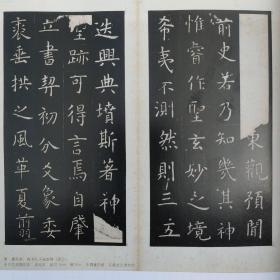 東觀預聞
前史若乃知幾其神
惟睿作聖玄妙之境
希夷不測然則三五
迭興典墳斯著神
聖跡可得言焉自肇
立書契初分爻象委
裘垂拱之風革夏翦